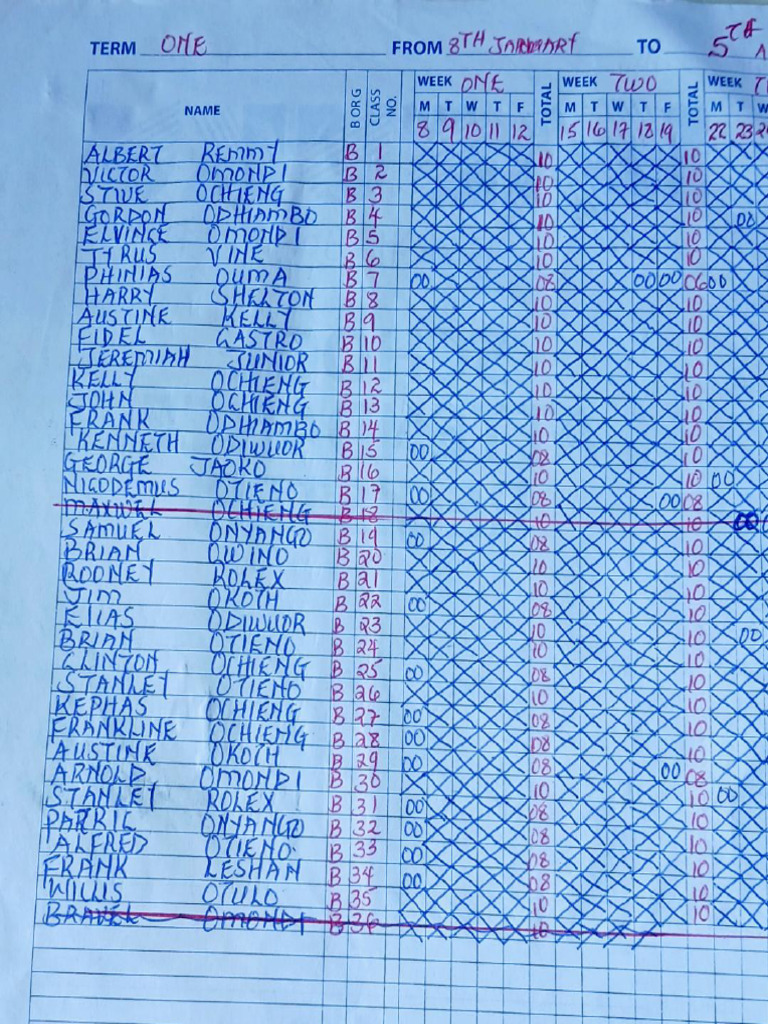 TERM ONE FROM 8TH JANUARY TO 5TH
NAME B OR G CLASS NO. WEEK ONE TOTAL WEEK TWO TOTAL WEEK
M T W T F M T W T F M T W
8 9 10 11 12 15 16 17 18 19 22 23 24
ALBERT REMMY B 1 10 10
VICTOR OMONDI B 2 10 10
STIVE OCHIENG B 3 10 10
GORDON ODHIAMBO B 4 10 10 00
ELVINCE OMONDI B 5 10 10
TYRUS VINE B 6 10 10
PHINIAS OUMA B 7 00 08 00 00 06 00
HARRY SHELTON B 8 10 10
AUSTINE KELLY B 9 10 10
FIDEL GASTRO B 10 10 10
JEREMIAH JUNIOR B 11 10 10
KELLY OCHIENG B 12 10 10
JOHN OCHIENG B 13 10 10
FRANK ODHIAMBO B 14 10 10
KENNETH ODIWUOR B 15 00 08 10
GEORGE JAOKO B 16 10 10 00
NICODEMUS OTIENO B 17 00 08 00 08
MAXWEL OCHIENG B 18 10 10 00
SAMUEL ONYANGO B 19 00 08 10
BRIAN OWINO B 20 10 10
RODNEY ROLEX B 21 10 10
JIM OKOTH B 22 00 08 10
ELIAS ODIWUOR B 23 10 10 00
BRIAN OTIENO B 24 10 10
CLINTON OCHIENG B 25 00 08 10
STANLEY OTIENO B 26 10 10
KEPHAS OCHIENG B 27 00 08 10
FRANKLINE OCHIENG B 28 00 08 10
AUSTINE OKOTH B 29 00 08 00 08
ARNOLD OMONDI B 30 10 10 00
STANLEY ROLEX B 31 00 08 10
PARRIC ONYANGO B 32 00 08 10
ALFRED OTIENO B 33 00 08 10
FRANK LESHAN B 34 00 08 10
WILLIS OTULO B 35 10 10
OMONDI B 36 10